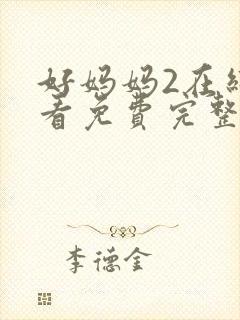 好妈妈2在
看免费完整
李德全